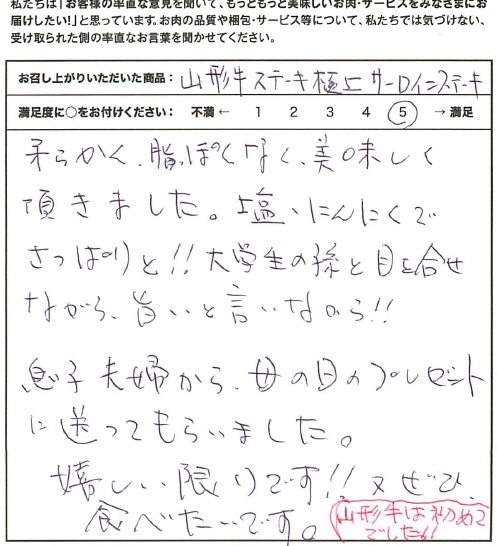 私たちは「お客様の率直な意見を聞いて、もっともっと美味しいお肉・サービスをみなさまにお
届けしたい!」と思っています。お肉の品質や梱包・サービス等について、私たちでは気づけない、
受け取られた側の率直なお言葉を聞かせてください。
お召し上がりいただいた商品: 山形牛ステーキ極上サーロインステーキ
満足度に○をお付けください: 不満 ← 1 2 3 4 5 → 満足
柔らかく、脂っぽくなく、美味しく
頂きました。塩、にんにくで
さっぱりと!!大学生の孫と目を合せ
ながら、旨いと言いながら!!
息子夫婦から、母の日のプレゼント
に送ってもらいました。
嬉しい限りです!!又ぜひ、
食べたいです。
山形牛は初めて
でした!!